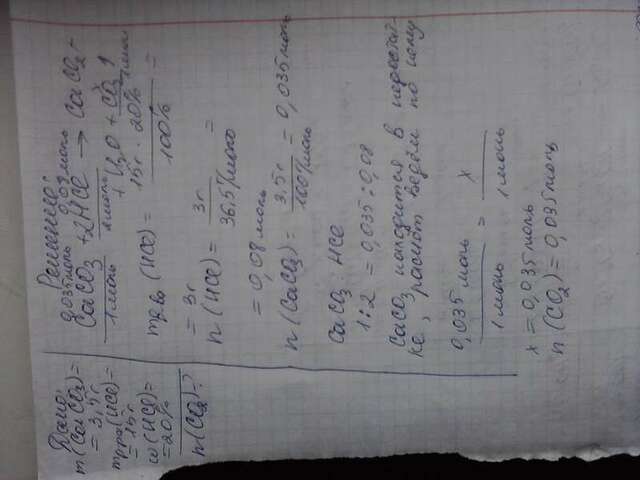 Дано:
m(CaCO3)=
= 3,5г
mр-ра(HCl)=
= 15г
w(HCl)=
=20%
n(CO2)-?
Решение:
0,035моль 0,08моль
CaCO3 + 2HCl → CaCl2 +
1моль 2моль
+ H2O + CO2↑
1моль
mв-ва (HCl) = 15г · 20% / 100% =
= 3г
n(HCl) = 3г / 36,5г/моль =
= 0,08 моль
n(CaCO3) = 3,5г / 100г/моль = 0,035моль
CaCO3 : HCl
1:2 = 0,035:0,08
CaCO3 находится в недостат-
ке, расчёт ведём по нему
0,035 моль / 1 моль = x / 1 моль
x = 0,035моль
n(CO2) = 0,035моль